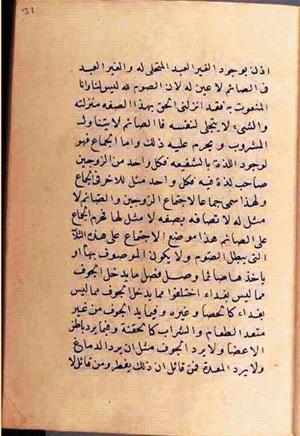 اذن بوجود الغير العبد المتحلى له والغير العبد
فالصائم لا عين له لان الصوم لله ليس لنا وانا
المنعوت به فقد انزلنى الحق بهذا الصفه منزلته
والشىء لا يتجلى لنفسه فالصائم لا يتناول
المشروب ويحرم عليه ذلك واما الجماع فهو
لوجود اللذة بالشفعه فكل واحد من الزوجين
صاحب لذة فيه فكل واحد مثل للاخر فى الجماع
ولهذا سمى جماعا لاجتماع الزوجين والصائم لا
مثل له لاتصافه بصفه لا مثل لها فحرم الجماع
على الصائم هذا موضع الاجتماع على هذه الثلاثة
التى تبطل الصوم ولا يكون الموصوف بها او
باحدها صائما وصل فصل ما يدخل الجوف
مما ليس بغداء اختلفوا فيما يدخل الجوف مما ليس
بغداء كالحصا وغيره وفيما يدخل الجوف من غير
منفذ الطعام والشراب كالحقنة وفيما يرد باطن
الاعضا ولا يرد الجوف مثل ان يرد الدماغ
ولا يرد المعدة فمن قائل ان ذلك يفطر ومن قائل لا